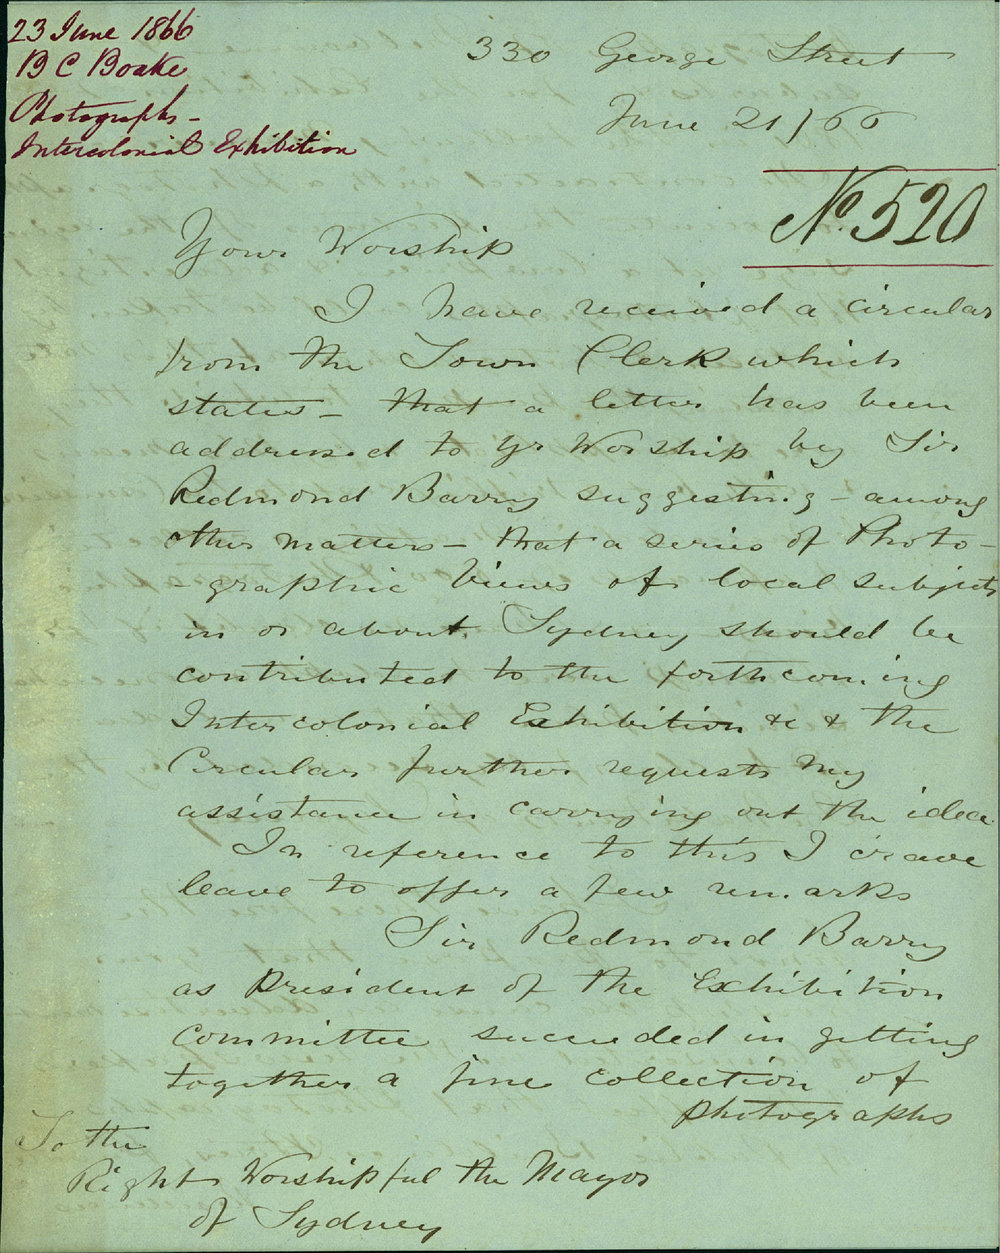 23 June 1866
B C Boake
Photographs -
Intercolonial Exhibition
330 George Street
June 21/66
No. 520
Your Worship
I have received a circular
from the Town Clerk which
states - that a letter has been
addressed to yr Worship by Sir
Redmond Barry suggesting - among
other matters - that a series of Photo-
-graphic Views of local subjects
in or about Sydney should be
contributed to the forthcoming
Intercolonial Exhibition &c & the
Circular further requests my
assistance in carrying out the idea
In reference to this I crave
leave to offer a few remarks
Sir Redmond Barry
as President of the Exhibition
committee succeeded in getting
together a fine collection of
photographs
To the
Right Worshipful the Mayor
of Sydney